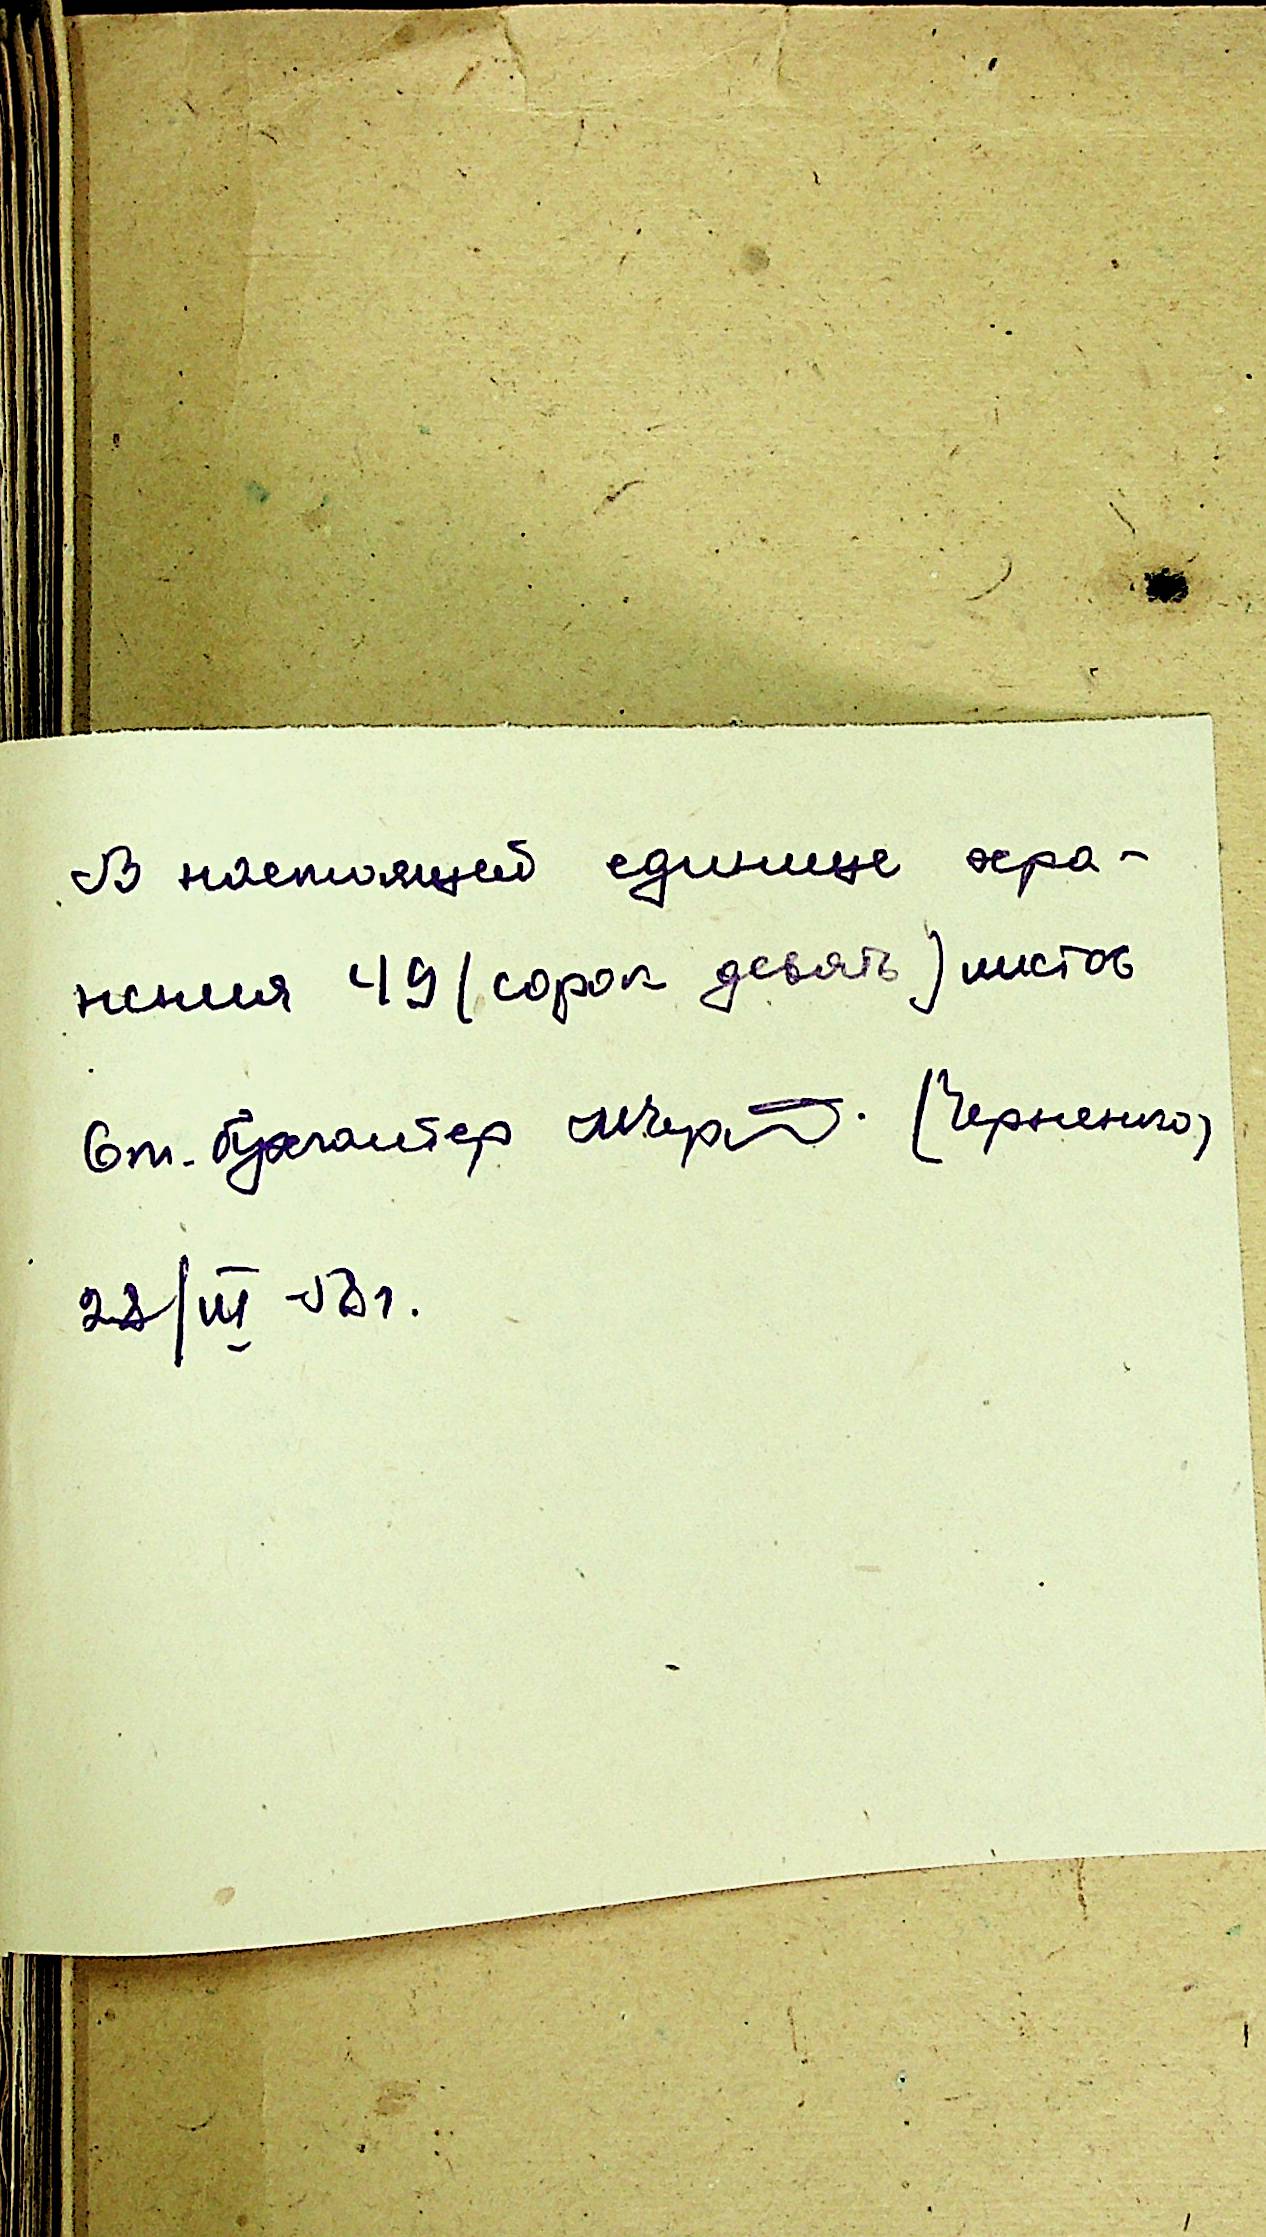 В настоящей единице хра-
нения 49 (сорок девять) листов
Ст. бухгалтер (Черненко)
28/III